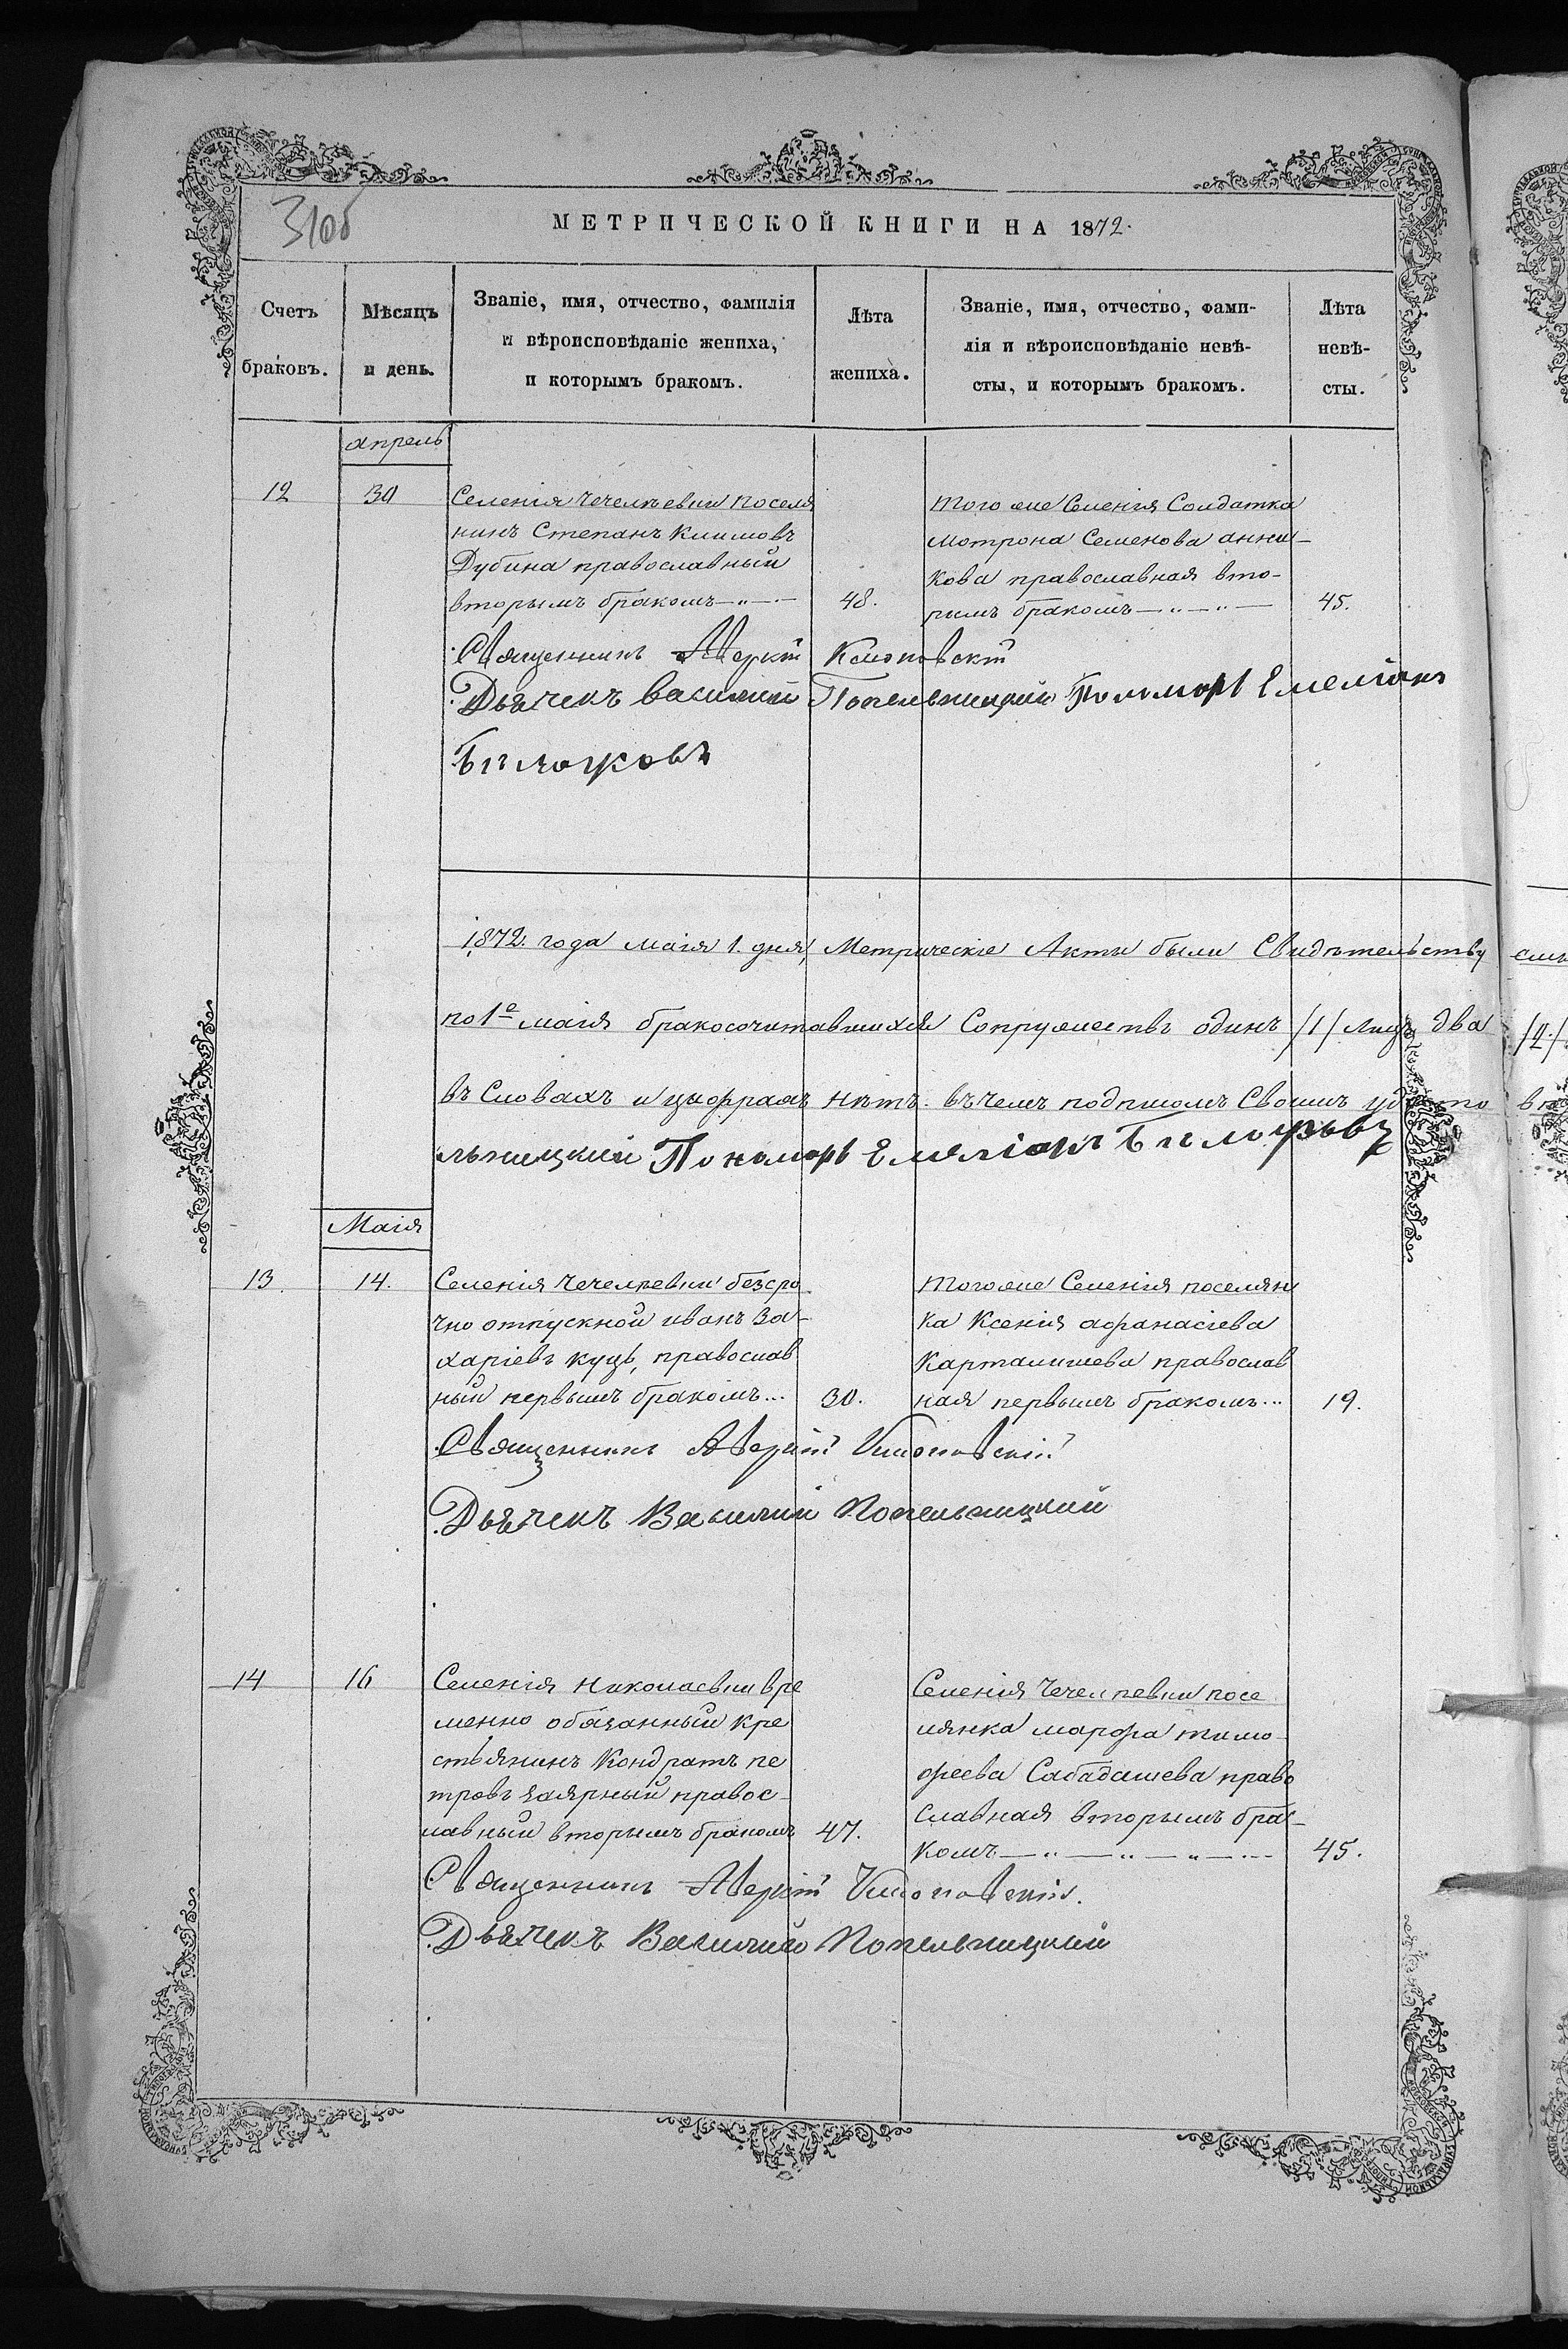 310б
МЕТРИЧЕСКОЙ КНИГИ НА 1872.
Счетъ браковъ.
Мѣсяцъ и день.
Званіе, имя, отчество, фамилія
и вѣроисповѣданіе жениха,
и которымъ бракомъ.
Лѣта жениха.
Званіе, имя, отчество, фами-
лія и вѣроисповѣданіе невѣ-
сты, и которымъ бракомъ.
Лѣта невѣ-
сты.
апрель
12
30
Селенія Чечелѣевки поселя
нинъ Степанъ Климовъ
Дубина православный
вторымъ бракомъ
48.
того же Селенія Солдатка
мотрона Семенова анни-
кова православная вто-
рымъ бракомъ
45.
Священникъ Аверкій Клоповскій
Дьячекъ василий Попельницкий Пономарь Емеліанъ
1872. года маія 1. дня, Метрическіе Акты были Свидѣтельству
по 1е маія бракосочитавшихся Супружествъ одинъ /1/ лицъ два /2./
въ Словахъ и цыфрахъ нѣтъ. въ чемъ подписомъ Своимъ
льницкий Пономарь Емеліанъ
Маія
13.
14.
Селенія Чечелѣевки безсро
чно отпускной иванъ За-
харіевъ куцъ, православ
ный первымъ бракомъ...
30.
того же Селенія поселян
ка Ксенія афанасіева
Карталишева православ
ная первымъ бракомъ...
19.
Священникъ Аверкій Клоповскій
Дьячекъ Василий Попельницкий
14
16
Селенія николаевки вре
менно обязанный кре
стьянинъ Кондратъ пе
тровъ заярный правос-
лавный вторымъ бракомъ
47.
Селенія Чечелѣевки посе
лянка марфа тимо-
феева Сабадашева право
славная вторымъ бра-
комъ
45.
Священникъ Аверкій Клоповскій.
Дьячекъ Василий Попельницкий